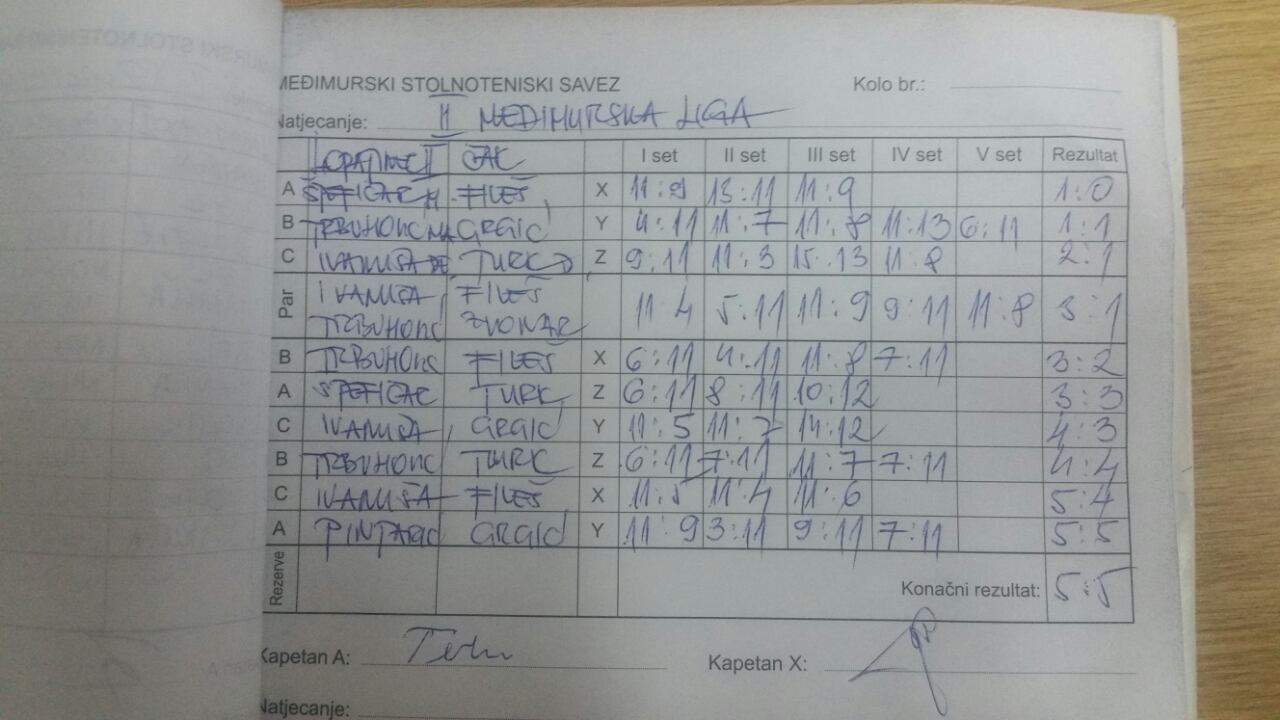 MEĐIMURSKI STOLNOTENISKI SAVEZ Kolo br.:
Natjecanje: II MEĐIMURSKA LIGA
LOPATINEC II I set II set III set IV set V set Rezultat
A ŠPEFIČAR M. FILEŠ X 11:9 13:11 11:9 1:0
B TRBUHOVIĆ GRGIĆ Y 4:11 11:7 11:8 11:13 6:11 1:1
C IVANUŠA TURK D. Z 9:11 11:3 15:13 11:8 2:1
Par IVANUŠA FILEŠ
TRBUHOVIĆ ZVONAR 11:4 5:11 11:9 9:11 11:8 3:1
B TRBUHOVIĆ FILEŠ X 6:11 4:11 11:8 7:11 3:2
A TURK Z 6:11 8:11 10:12 3:3
C IVANUŠA GRGIĆ Y 11:5 11:7 14:12 4:3
B TRBUHOVIĆ TURK Z 6:11 7:11 11:7 7:11 4:4
C IVANUŠA FILEŠ X 11:5 11:4 11:6 5:4
A PINTARIĆ GRGIĆ Y 11:9 3:11 9:11 7:11 5:5
Rezerve Konačni rezultat: 5:5
Kapetan A: Kapetan X:
Natjecanje: